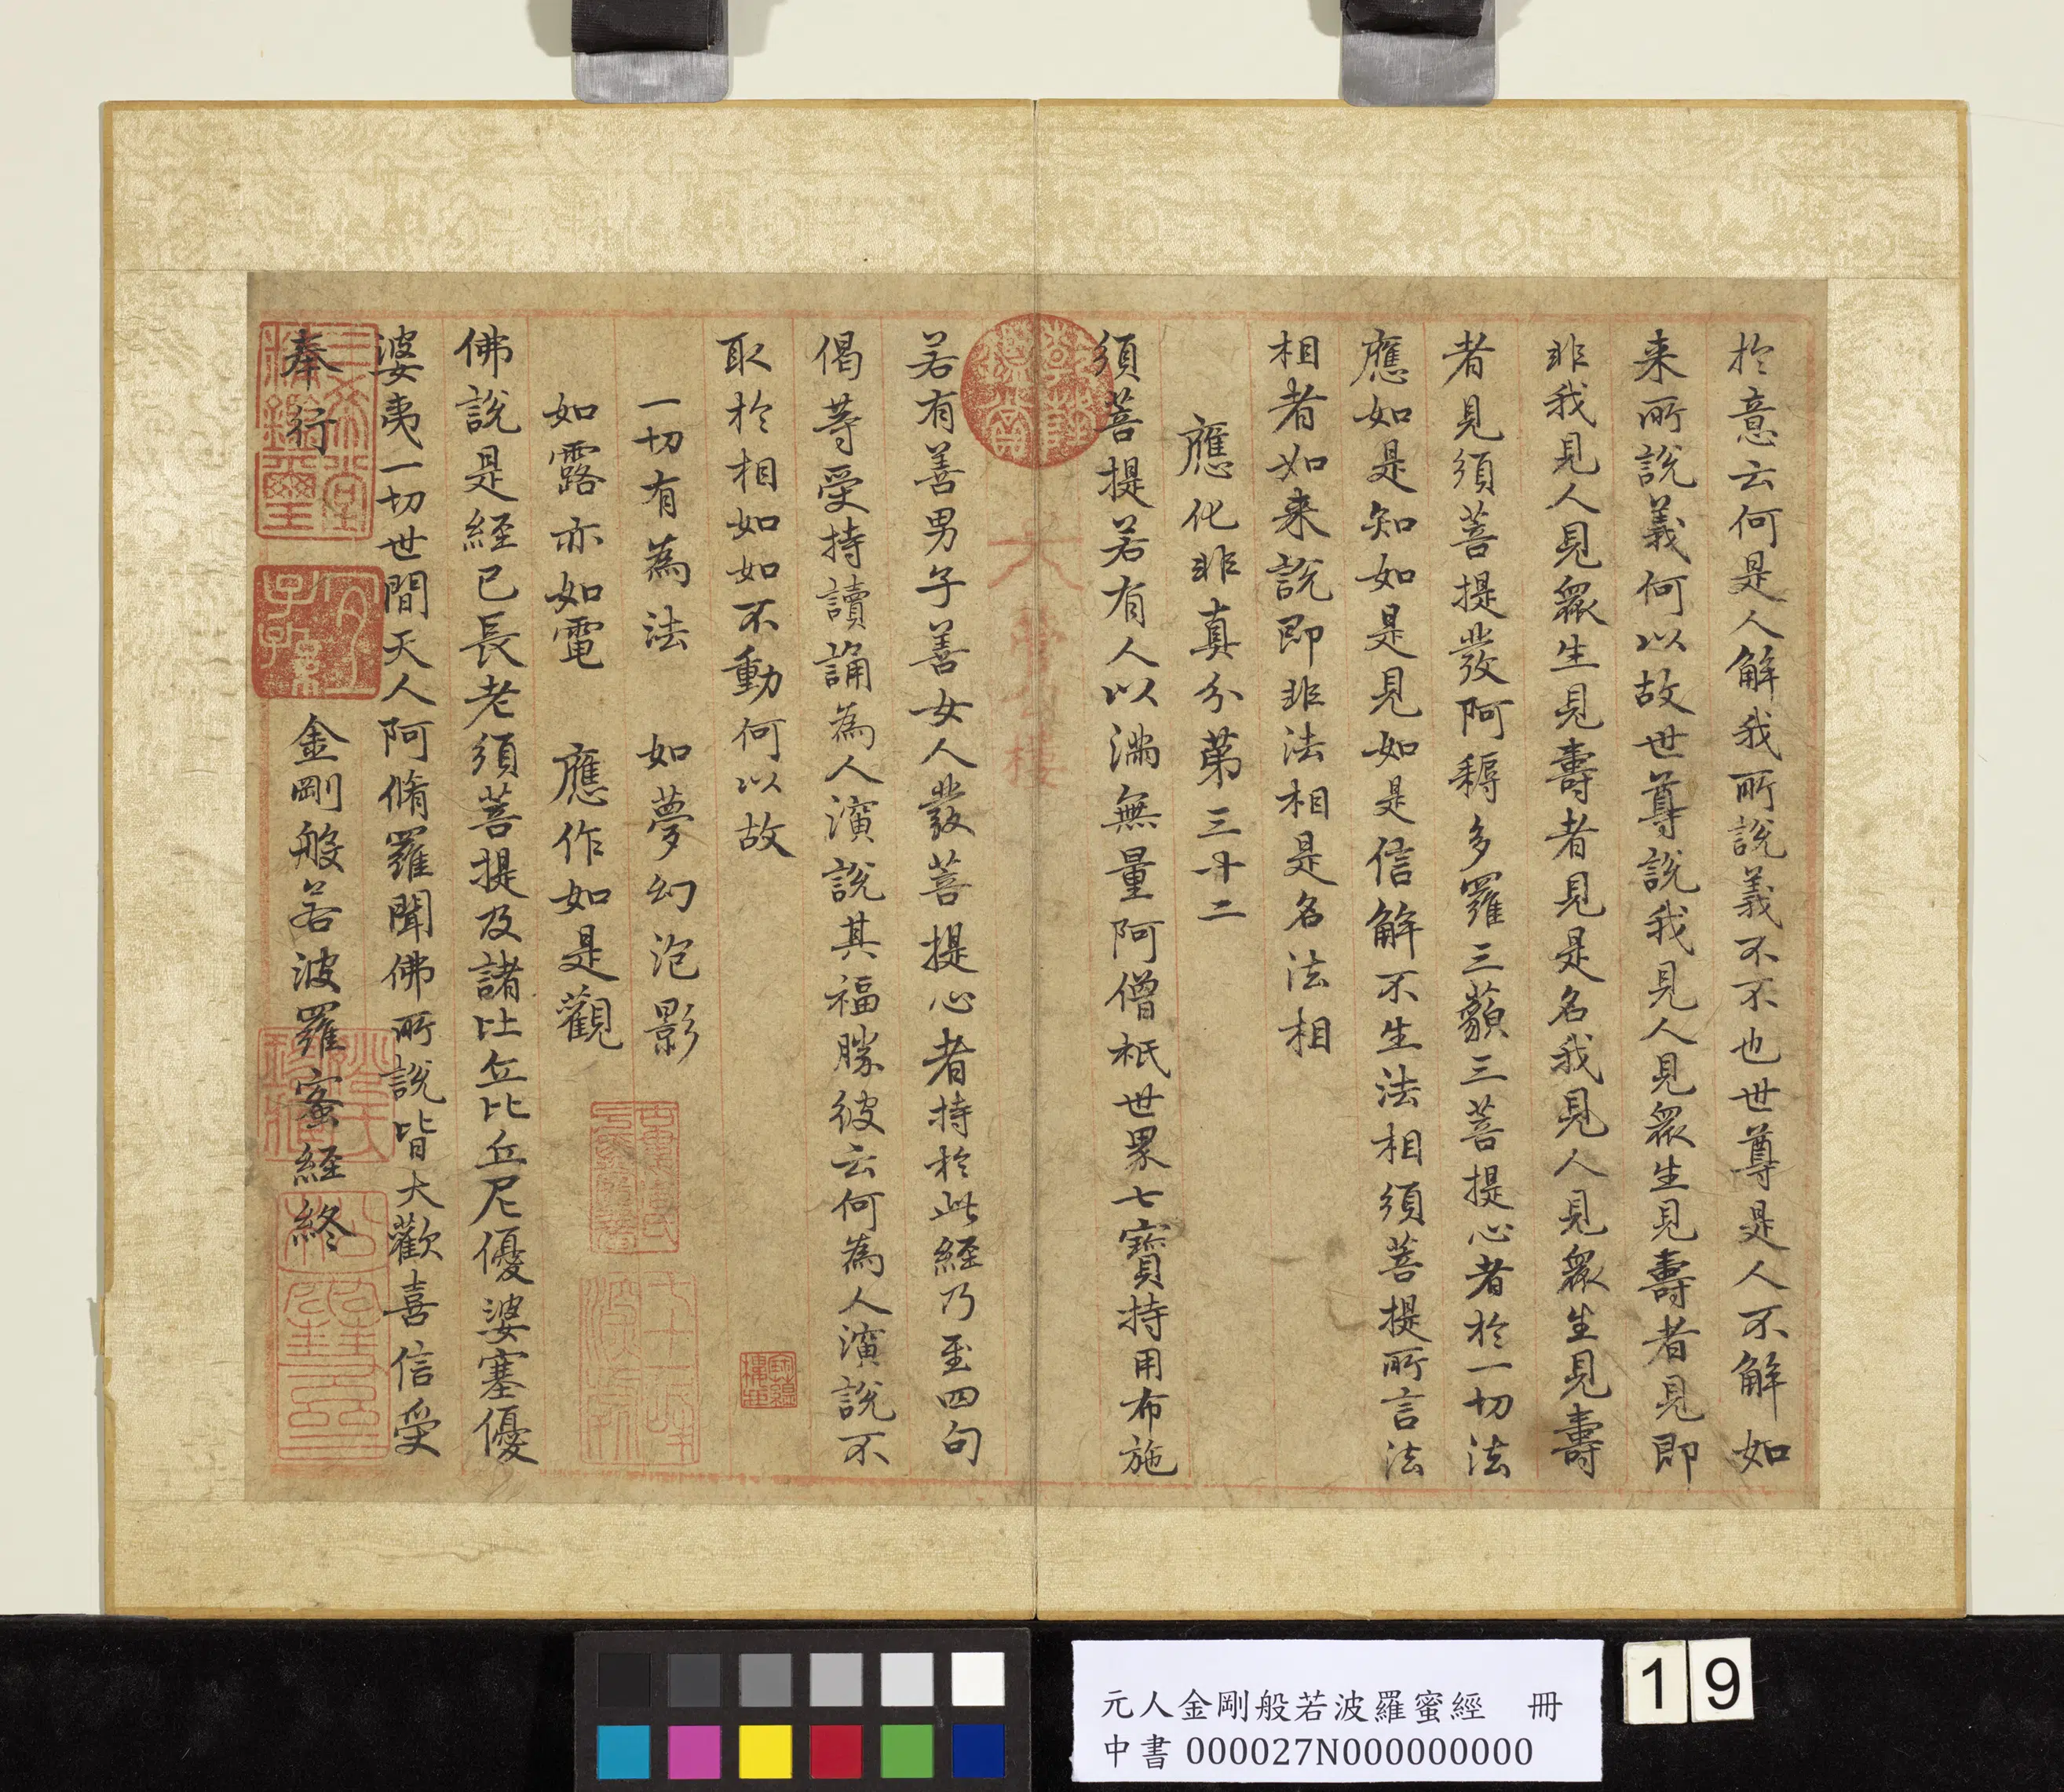 於意云何是人解我所說義不不也世尊是人不解如
来所說義何以故世尊說我見人見衆生見壽者見即
非我見人見衆生見壽者見是名我見人見衆生見壽
者見須菩提發阿耨多羅三藐三菩提心者於一切法
應如是知如是見如是信解不生法相須菩提所言法
相者如来說即非法相是名法相
應化非真分第三十二
須菩提若有人以滿無量阿僧祇世界七寶持用布施
若有善男子善女人發菩提心者持於此經乃至四句
偈等受持讀誦為人演說其福勝彼云何為人演說不
取於相如如不動何以故
一切有為法 如夢幻泡影
如露亦如電 應作如是觀
佛說是經已長老須菩提及諸比丘比丘尼優婆塞優
婆夷一切世間天人阿脩羅聞佛所說皆大歡喜信受
奉行 金剛般若波羅蜜經終
三希堂精鑑璽
宜子孫
元人金剛般若波羅蜜經 冊
中書 000027N000000000
19